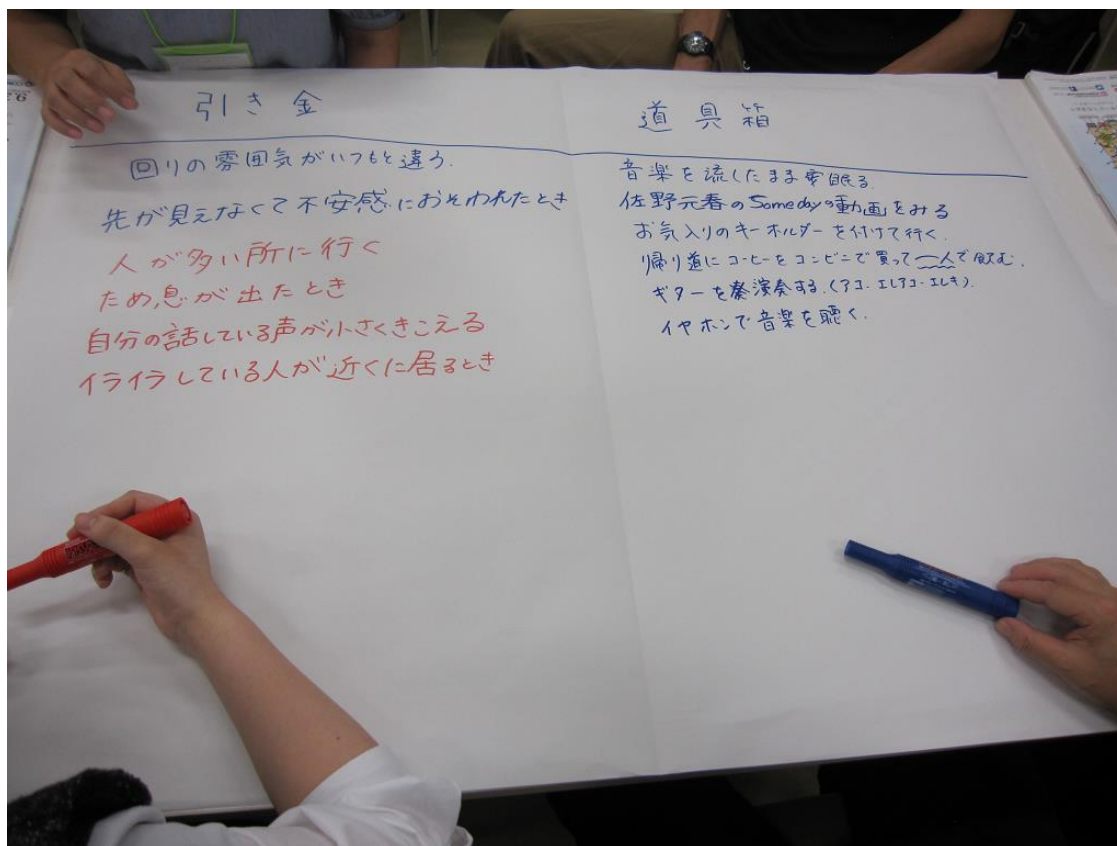 引き金
回りの雰囲気がいつもと違う.
先が見えなくて不安感におそわれたとき
人が多い所に行く
ため息が出たとき
自分の話している声が小さくきこえる
イライラしている人が近くに居るとき
道具箱
音楽を流したまま眠る.
佐野元春のSomedayの動画をみる
お気入りのキーホルダーを付けて行く.
帰り道にコーヒーをコンビニで買って一人で飲む.
ギターを演奏する.(アコ.エレアコ.エレキ).
イヤホンで音楽を聴く.